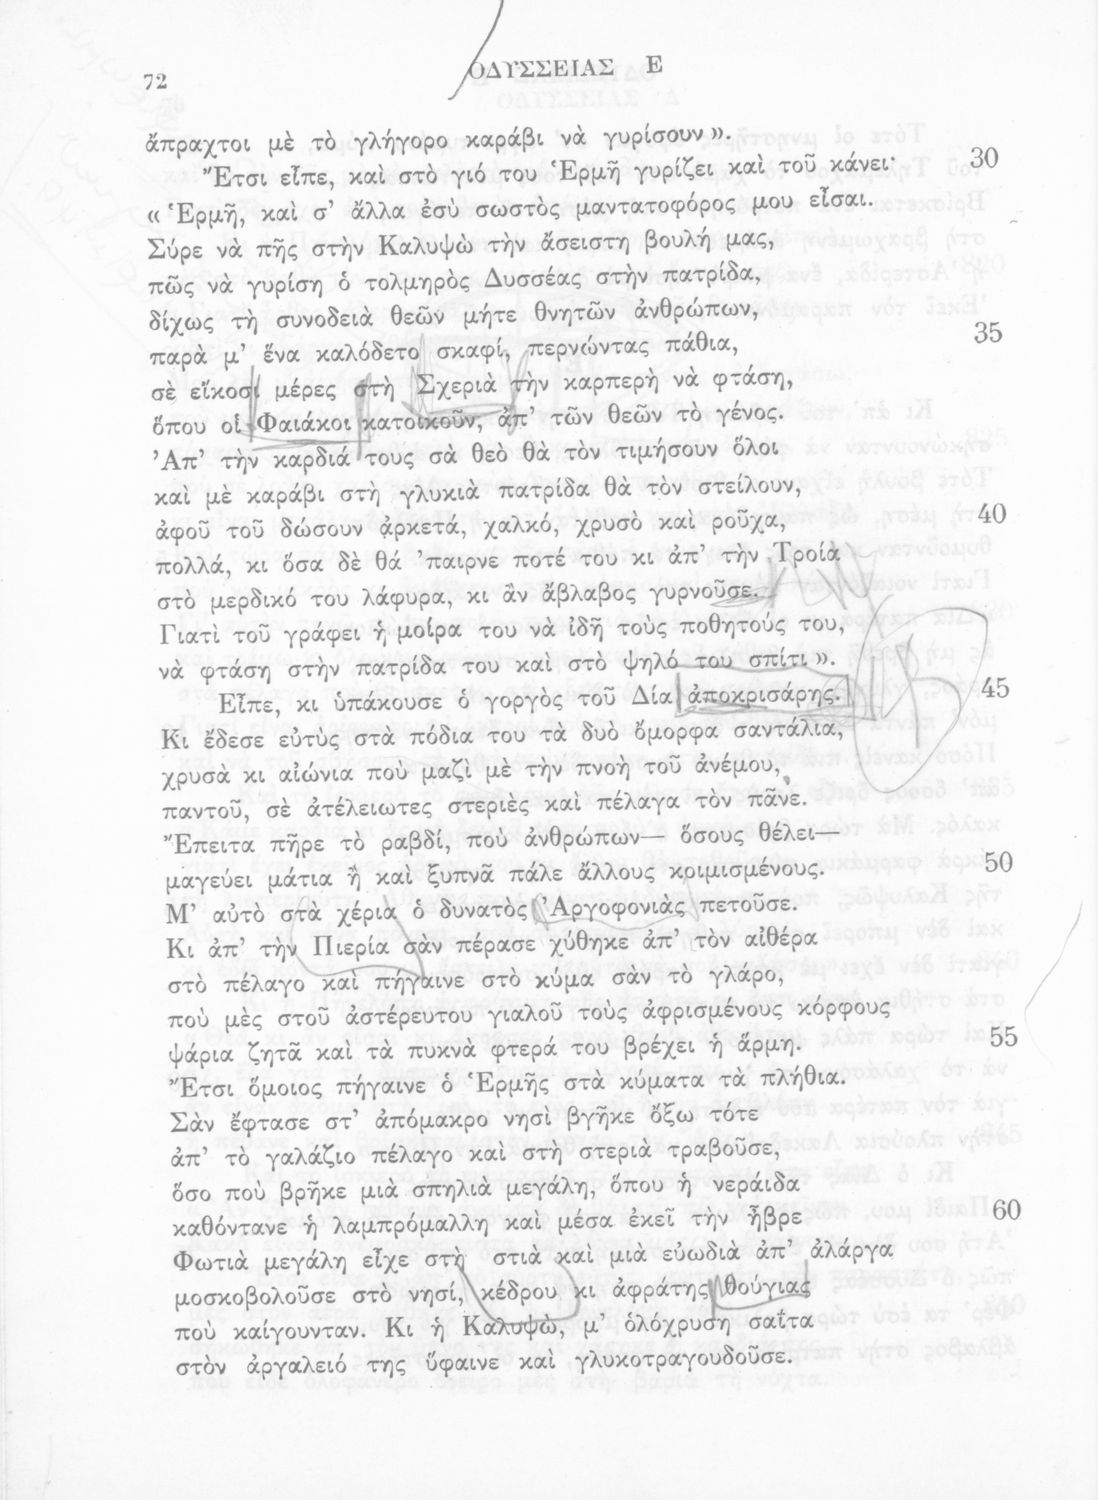 72
ΟΔΥΣΣΕΙΑΣ Ε
ἄπραχτοι μὲ τὸ γλήγορο καράβι νὰ γυρίσουν».
Ἔτσι εἶπε, καὶ στὸ γιό του Ἑρμῆ γυρίζει καὶ τοῦ κάνει· 30
«Ἑρμῆ, καὶ σ’ ἄλλα ἐσὺ σωστὸς μαντατοφόρος μου εἶσαι.
Σύρε νὰ πῆς στὴν Καλυψὼ τὴν ἄσειστη βουλή μας,
πῶς νὰ γυρίση ὁ τολμηρὸς Δυσσέας στὴν πατρίδα,
δίχως τὴ συνοδειὰ θεῶν μήτε θνητῶν ἀνθρώπων,
παρὰ μ’ ἕνα καλόδετο σκαφί, περνώντας πάθια, 35
σὲ εἴκοσι μέρες στὴ Σχεριὰ τὴν καρπερὴ νὰ φτάση,
ὅπου οἱ Φαιάκοι κατοικοῦν, ἀπ’ τῶν θεῶν τὸ γένος.
Ἀπ’ τὴν καρδιά τους σὰ θεὸ θὰ τὸν τιμήσουν ὅλοι
καὶ μὲ καράβι στὴ γλυκιὰ πατρίδα θὰ τὸν στείλουν,
ἀφοῦ τοῦ δώσουν ἀρκετά, χαλκό, χρυσὸ καὶ ροῦχα, 40
πολλά, κι ὅσα δὲ θά ’παιρνε ποτέ του κι ἀπ’ τὴν Τροία
στὸ μερδικό του λάφυρα, κι ἂν ἄβλαβος γυρνοῦσε.
Γιατὶ τοῦ γράφει ἡ μοίρα του νὰ ἰδῆ τοὺς ποθητούς του,
νὰ φτάση στὴν πατρίδα του καὶ στὸ ψηλό του σπίτι».
Εἶπε, κι ὑπάκουσε ὁ γοργὸς τοῦ Δία ἀποκρισάρης. 45
Κι ἔδεσε εὐτὺς στὰ πόδια του τὰ δυὸ ὄμορφα σαντάλια,
χρυσὰ κι αἰώνια ποὺ μαζὶ μὲ τὴν πνοὴ τοῦ ἀνέμου,
παντοῦ, σὲ ἀτέλειωτες στεριὲς καὶ πέλαγα τὸν πᾶνε.
Ἔπειτα πῆρε τὸ ραβδί, ποὺ ἀνθρώπων— ὅσους θέλει—
μαγεύει μάτια ἢ καὶ ξυπνᾶ πάλε ἄλλους κριμισμένους. 50
Μ’ αὐτὸ στὰ χέρια ὁ δυνατὸς Ἀργοφονιὰς πετοῦσε.
Κι ἀπ’ τὴν Πιερία σὰν πέρασε χύθηκε ἀπ’ τὸν αἰθέρα
στὸ πέλαγο καὶ πήγαινε στὸ κύμα σὰν τὸ γλάρο,
ποὺ μὲς στοῦ ἀστέρευτου γιαλοῦ τοὺς ἀφρισμένους κόρφους
ψάρια ζητᾶ καὶ τὰ πυκνὰ φτερά του βρέχει ἡ ἅρμη. 55
Ἔτσι ὅμοιος πήγαινε ὁ Ἑρμῆς στὰ κύματα τὰ πλήθια.
Σὰν ἔφτασε στ’ ἀπόμακρο νησὶ βγῆκε ὄξω τότε
ἀπ’ τὸ γαλάζιο πέλαγο καὶ στὴ στεριὰ τραβοῦσε,
ὅσο ποὺ βρῆκε μιὰ σπηλιὰ μεγάλη, ὅπου ἡ νεράιδα
καθόντανε ἡ λαμπρόμαλλη καὶ μέσα ἐκεῖ τὴν ἦβρε 60
Φωτιὰ μεγάλη εἶχε στὴ στιὰ καὶ μιὰ εὐωδιὰ ἀπ’ ἀλάργα
μοσκοβολοῦσε στὸ νησί, κέδρου κι ἀφράτης θούγιας
ποὺ καίγουνταν. Κι ἡ Καλυψώ, μ’ ὁλόχρυση σαΐτα
στὸν ἀργαλειό της ὕφαινε καὶ γλυκοτραγουδοῦσε.